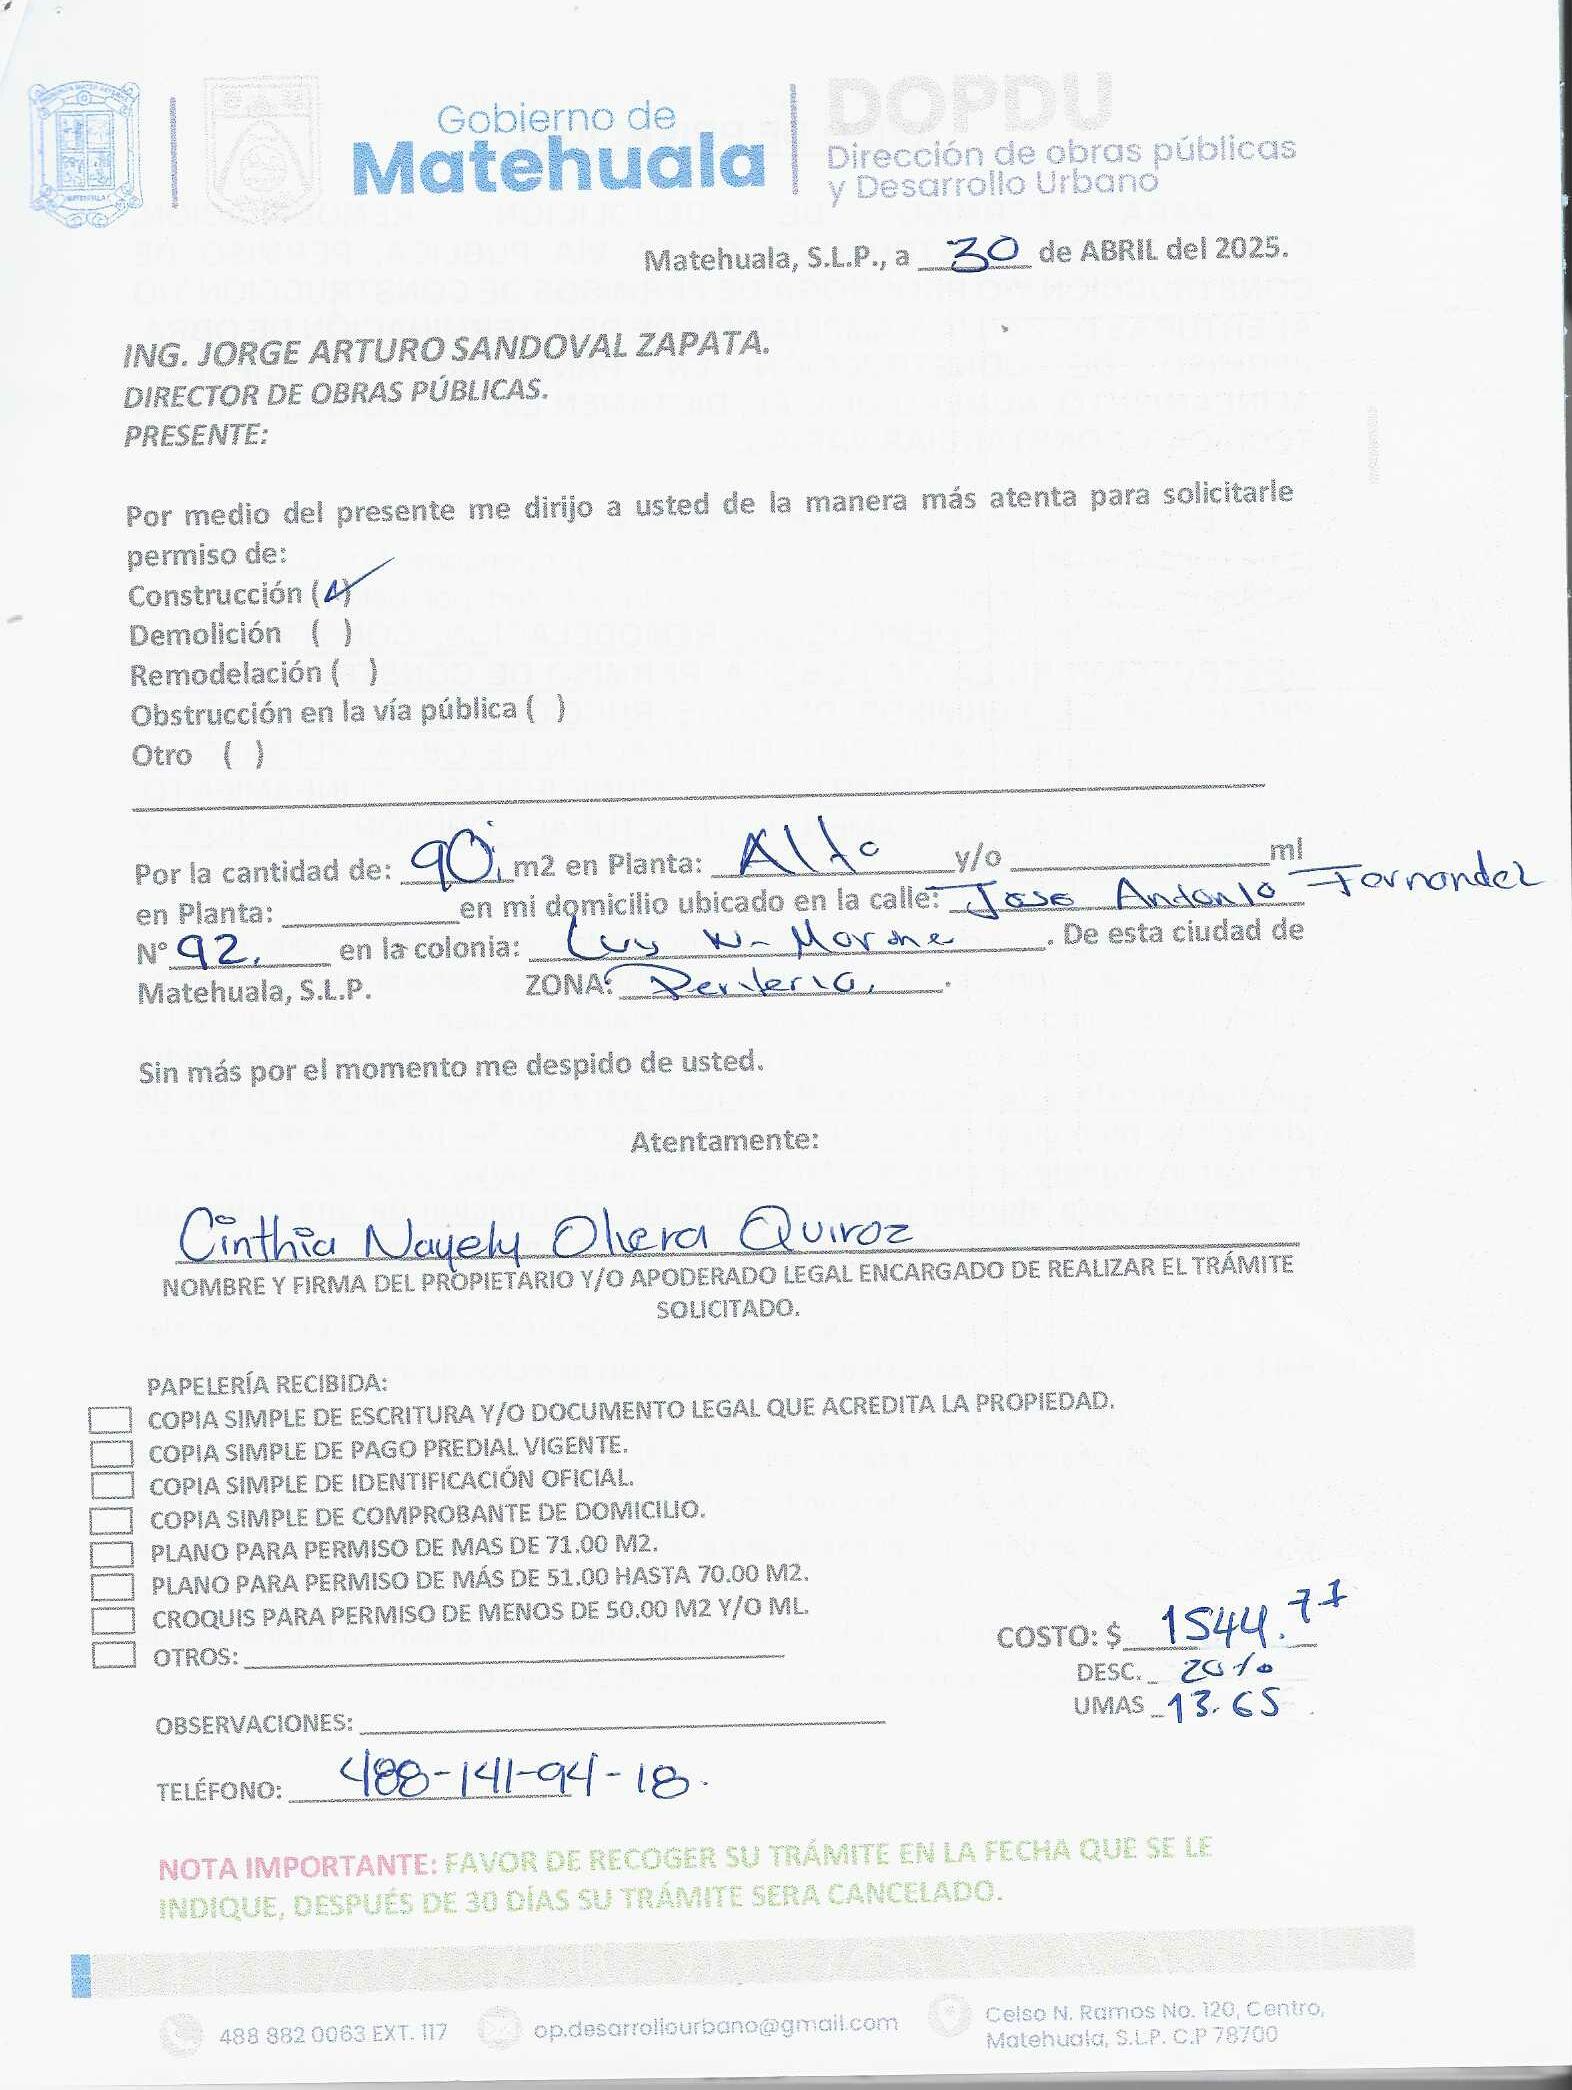 Gobierno de
Matehuala
DOPDU
Dirección de obras públicas
y Desarrollo Urbano
Matehuala, S.L.P., a 30 de ABRIL del 2025.
ING. JORGE ARTURO SANDOVAL ZAPATA.
DIRECTOR DE OBRAS PÚBLICAS.
PRESENTE:
Por medio del presente me dirijo a usted de la manera más atenta para solicitarle
permiso de:
Construcción (✓)
Demolición ( )
Remodelación ( )
Obstrucción en la vía pública ( )
Otro ( )
Por la cantidad de: 90. m2 en Planta: Alta y/o ml
en Planta: en mi domicilio ubicado en la calle: Jose Antonio Fernandez
N° 92. en la colonia: De esta ciudad de
Matehuala, S.L.P. ZONA: Periferia.
Sin más por el momento me despido de usted.
Atentamente:
Cinthia Nayely Olvera Quiroz
NOMBRE Y FIRMA DEL PROPIETARIO Y/O APODERADO LEGAL ENCARGADO DE REALIZAR EL TRÁMITE
SOLICITADO.
PAPELERÍA RECIBIDA:
COPIA SIMPLE DE ESCRITURA Y/O DOCUMENTO LEGAL QUE ACREDITA LA PROPIEDAD.
COPIA SIMPLE DE PAGO PREDIAL VIGENTE.
COPIA SIMPLE DE IDENTIFICACIÓN OFICIAL.
COPIA SIMPLE DE COMPROBANTE DE DOMICILIO.
PLANO PARA PERMISO DE MAS DE 71.00 M2.
PLANO PARA PERMISO DE MÁS DE 51.00 HASTA 70.00 M2.
CROQUIS PARA PERMISO DE MENOS DE 50.00 M2 Y/O ML.
OTROS:
COSTO: $ 1544.77
DESC. 20%
UMAS 13.65
OBSERVACIONES:
TELÉFONO: 488-141-94-18.
NOTA IMPORTANTE: FAVOR DE RECOGER SU TRÁMITE EN LA FECHA QUE SE LE
INDIQUE, DESPUÉS DE 30 DÍAS SU TRÁMITE SERA CANCELADO.
488 882 0063 EXT. 117
op.desarrollourbano@gmail.com
Celso N. Ramos No. 120, Centro,
Matehuala, S.L.P. C.P 78700